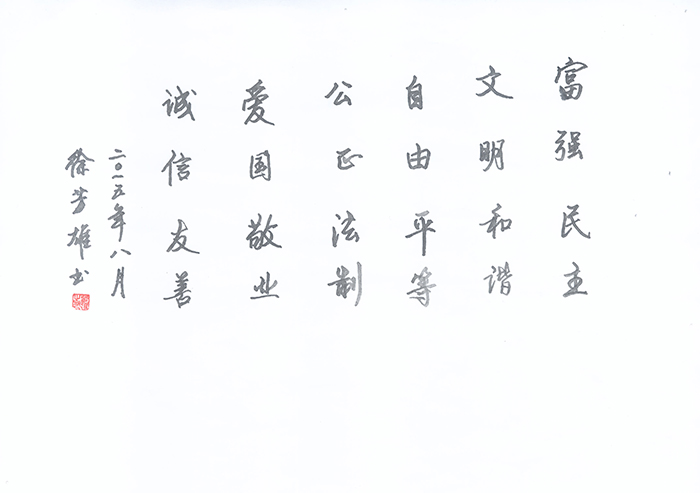 富强民主
文明和谐
自由平等
公正法制
爱国敬业
诚信友善
二〇一五年八月
徐芳雄书